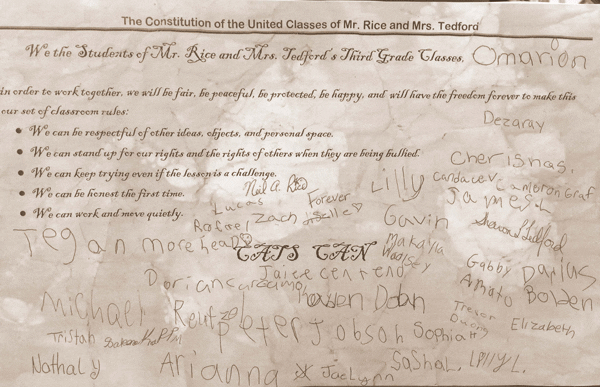 The Constitution of the United Classes of Mr. Rice and Mrs. Tedford
We the Students of Mr. Rice and Mrs. Tedford's Third Grade Classes,
Omarion
in order to work together, we will be fair, be peaceful, be protected, be happy, and will have the freedom forever to make this
our set of classroom rules:
Dezaray
We can be respectful of other ideas, objects, and personal space.
We can stand up for our rights and the rights of others when they are being bullied.
We can keep trying even if the lesson is a challenge.
We can be honest the first time.
We can work and move quietly.
Cameron Graf
Lilly
James
Lucas
Forever
Zach
Gavin
Tegan
CATS CAN
Makayla
Woolsey
Gabby
Darias
Michael
Bowen
Peter Jobson
Sophia H
Trevor
Elizabeth
Tristan
Nathaly
Arianna
Jaclynn
Sasha L.
Lilly L.